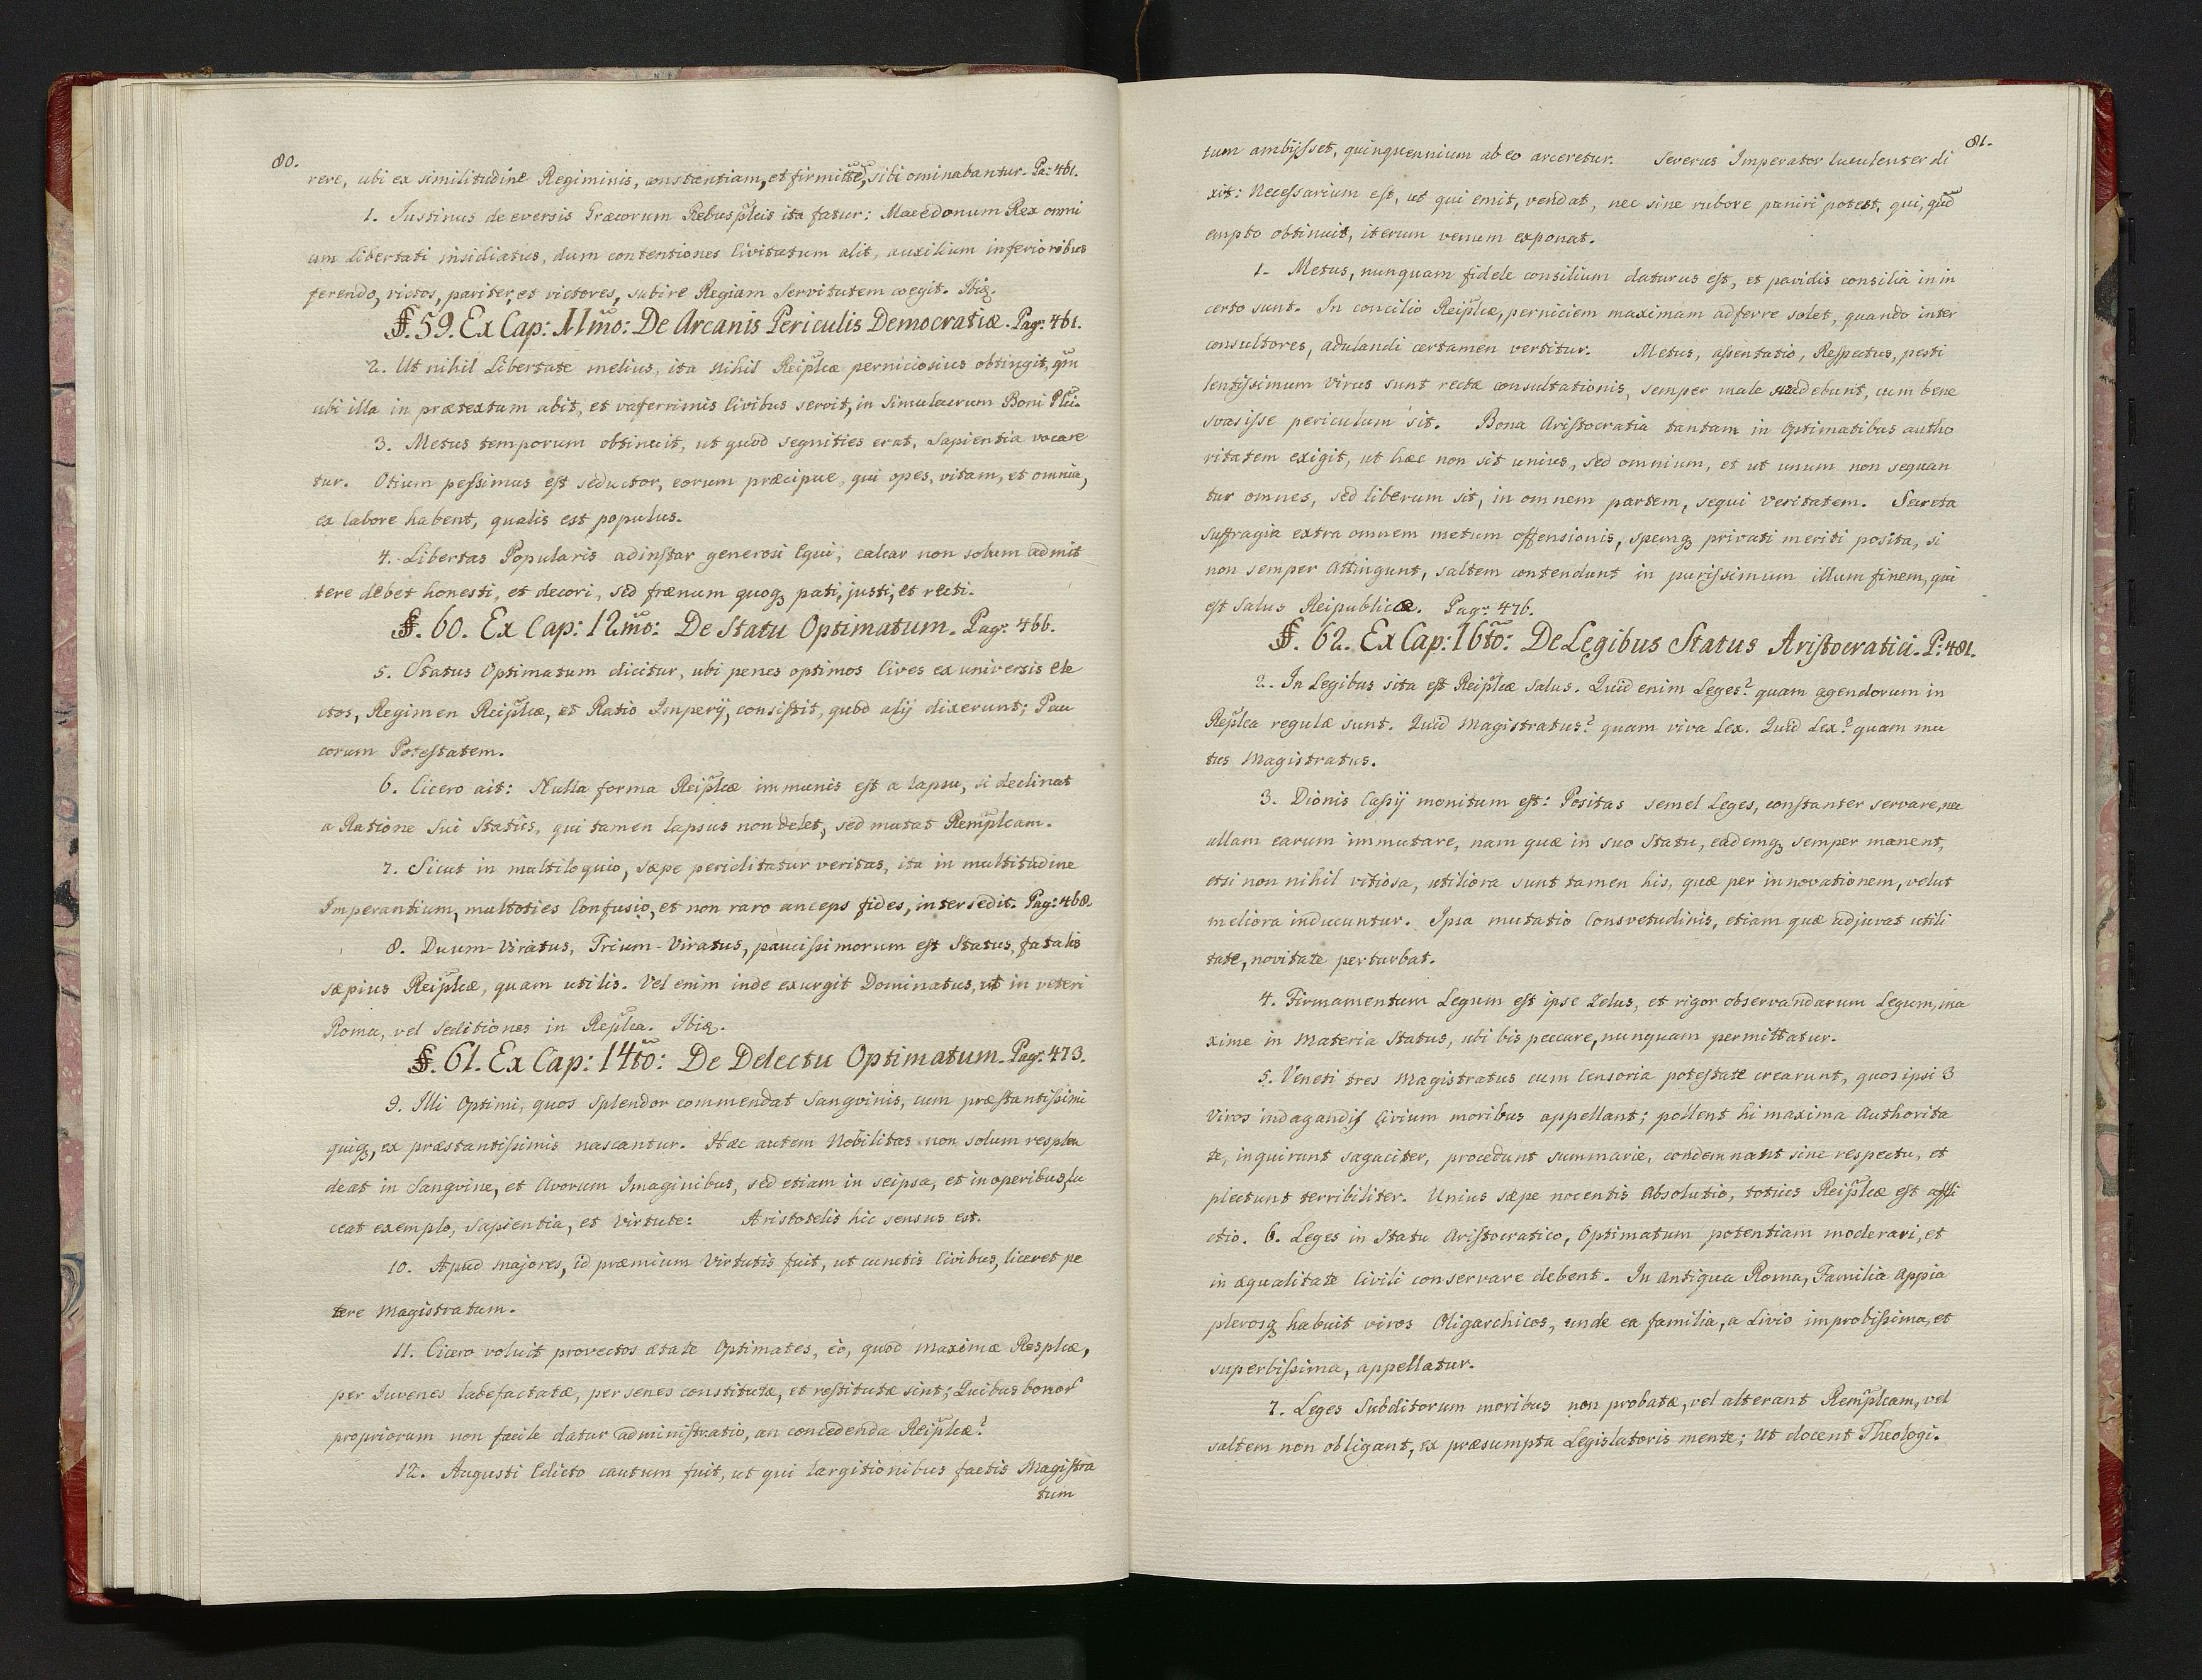 80.
rere, ubi ex similitudine Regiminis, constantiam, et firmitt~e, sibi ominabantur. Pa: 461.
1. Justinus de eversis Græcorum Rebuspl~cis ita fatur: Macedonum Rex omni
um Libertati insidiatus, dum contentiones Civitatum alit, auxilium inferioribus
ferendo, victos, pariter, et victores, subire Regiam Servitutem coegit. Ibiq.
§. 59. Ex Cap: 11m~o: De Arcanis Periculis Democratiæ. Pagr. 461.
2. Ut nihil Libertate melius, ita Nihil Reipl~cæ perniciosius obtingit, q~m
ubi illa in prætextum abit, et vaferrimis Civibus servit, in Simulacrum Boni Pl~ci.
3. Metus temporum obtinuit, ut quod segnities erat, Sapientia vocare
tur. Otium pessimus est seductor, eorum præcipue, qui opes, vitam, et omnia,
ex labore habent, qualis est populus.
4. Libertas Popularis adinstar generosi Equi, calcar non solum admit
tere debet honesti, et decori, sed frænum quoq pati, justi, et recti.
§. 60. Ex Cap: 12m~o: De Statu Optimatum. Pagr. 466.
5. Status Optimatum dicitur, ubi penes optimos Cives ex universis ele
ctos, Regimen Reipl~cæ, et Ratio Imperij, consistit, quod alij dixerunt; Pau
corum Potestatem.
6. Cicero ait: Nulla forma Reipl~cæ immunis est a lapsu, si declinat
a Ratione Sui Status, qui tamen lapsus non delet, sed mutat Rempl~cam.
7. Sicut in multiloquio, sæpe periclitatur veritas, ita in multitudine
Imperantium, multoties Confusio, et non raro anceps fides, intersedit. Pag: 468.
8. Duum-Viratus, Trium-Viratus, paucissimorum est Status, fatalis
sæpius Reipl~cæ, quam utilis. Vel enim inde exurgit Dominatus, ut in veteri
Roma, vel Seditiones in Repl~ca. Ibiq.
§. 61. Ex Cap: 14t~o: De Delectu Optimatum. Pagr. 473.
9. Illi Optimi, quos Splendor commendat Sangvinis, cum præstantissimi
quiq, ex præstantissimis nascantur. Hæc autem Nobilitas non solum resplen
deat in Sangvine, et Avorum Imaginibus, sed etiam in seipsa, et in operibus, lu
ceat exemplo, Sapientia, et Virtute: Aristotelis hic sensus est.
10. Apud Majores, id præmium Virtutis fuit, ut cunctis Civibus, liceret pe
tere Magistratum.
11. Cicero voluit provectos ætate Optimates, eo, quod maximæ Resplcæ,
per Iuvenes labefactatæ, per senes constitutæ, et restitutæ sint; Quibus bonor~
propriorum non facile datur administratio, an concedenda Reipl~cæ?
12. Augusti Edicto cautum fuit, ut qui largitionibus factis Magistra
tum
81.
tum ambijsset, quinquennium ab eo arceretur. Severus Imperator luculenter di
xit: Necessarium est, ut qui emit, vendat, nec sine rubore puniri potest, qui, q~ud
empto obtinuit, iterum venum exponat.
1. Metus, nunquam fidele consilium daturus est, et pavidis consilia in in
certo sunt. In concilio Reipl~cæ, perniciem maximam adferre solet, quando inter
consultores, adulandi certamen vertitur. Metus, assentatio, Respectus, pesti
lentissimum virus sunt rectæ consultationis, semper male suadebunt, cum bene
svasisse periculum sit. Bona Aristocratia tantam in Optimatibus autho
ritatem exigit, ut hæc non sit unius, sed omnium, et ut unum non sequan
tur omnes, sed liberum sit, in omnem partem, sequi veritatem. Secreta
Suffragia extra omnem metum offensionis, spemq privati meriti posita, si
non semper attingunt, saltem contendunt in purissimum illum finem, qui
est Salus Reipublicæ. Pagr. 476.
§. 62. Ex Cap: 16t~o: De Legibus Status Aristocratici. P: 481.
2. In Legibus sita est Reipl~cæ Salus. Quid enim Leges? quam agendorum in
Repl~ca regulæ sunt. Quid Magistratus? quam viva Lex. Quid Lex? quam mu
tus Magistratus.
3. Dionis Cassij monitum est: Positas semel Leges, constanter servare, nec
ullam earum immutare, nam quæ in suo Statu, eademq semper manent,
etsi non nihil vitiosa, utiliora sunt tamen his, quæ per innovationem, velut
meliora inducuntur. Ipsa mutatio Consvetudinis, etiam quæ adjuvat utili
tate, novitate perturbat.
4. Firmamentum Legum est ipse Zelus, et rigor observandarum Legum, ma
xime in Materia Status, ubi bis peccare, nunquam permittatur.
5. Veneti tres Magistratus cum Censoria potestate crearunt, quos ipsi 3
Viros indagandis Civium moribus appellant; pollent hi maxima Authorita
te, inquirunt sagaciter, procedunt summarie, condemnant sine respectu, et
plectunt terribiliter. Unius sæpe nocentis Absolutio, totius Reipl~cæ est affli
ctio. 6. Leges in Statu Aristocratico, Optimatum potentiam moderari, et
in æqualitate Civili conservare debent. In antiqua Roma, Familia Appia
plerosq habuit viros Oligarchicos, unde ea familia, a Livio improbissima, et
superbissima, appellatur.
7. Leges Subditorum moribus non probatæ, vel alterant Rempl~cam, vel
saltem non obligant, ex præsumpta Legislatoris mente; Ut docent Theologi.